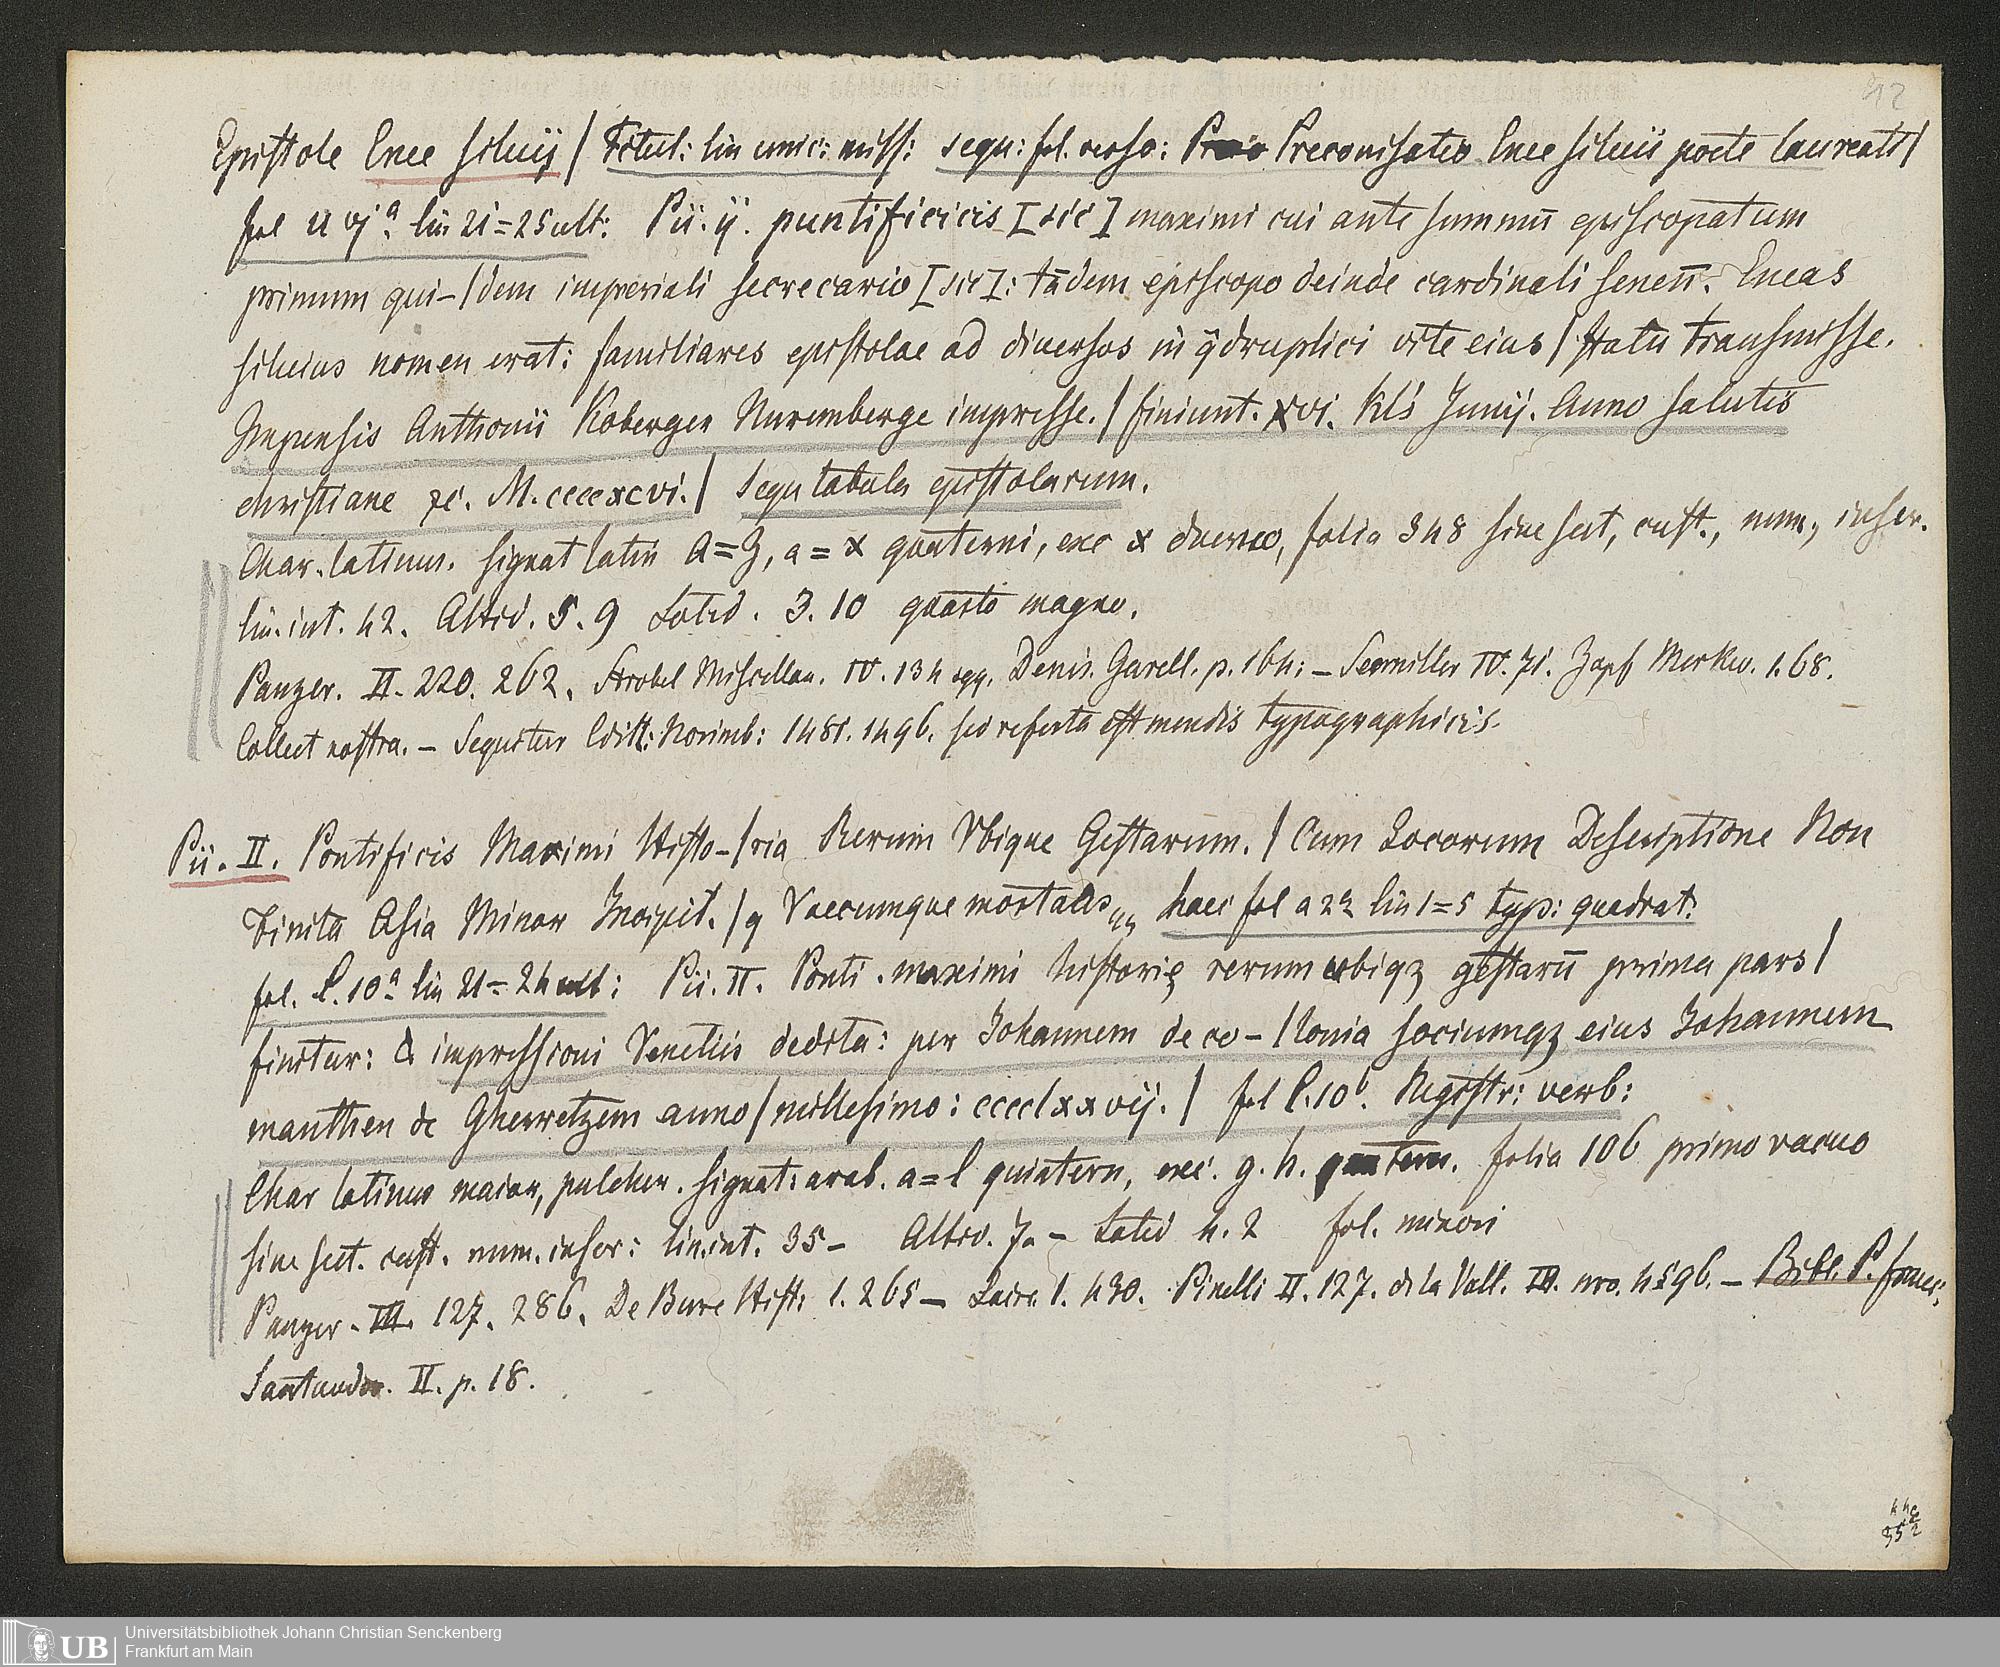 92
Epistole Enee siluij | Titul: lin unic: miss: sequ: fol. verso: Preconisatio Enee siluii poete laureati |
fol u vjᵃ lin 21=25 ult: Pii. ij. puntificicis [sic] maximi cui ante summū episcopatum
primum qui-|dem imperiali secrecario [sic]: tādem episcopo deinde cardinali seneñ. Eneas
siluius nomen erat: familiares epistolae ad diuersos in q̄druplici vite eius | statu transmisse.
Impensis Anthonii Koberger Nuremberge impresse. | finiunt. xvi. kls Junij. Anno salutis
christiane ⁊c. M.ccccxcvi. | Sequ tabula epistolarum.
Char. latinus. signat latin A=Z, a=x quaterni, exc x duerno, folia 348 sine sect, cust., num., inscr.
lin. int. 42. Altid. 5. 9 Latid. 3. 10 quarto magno.
Panzer. II. 220. 262. Strobel Miscellan. IV. 134 sqq. Denis. Garell. p. 164. – Seemiller IV. 71. Zapf Merkw. 1. 68.
Collect nostra. – Sequitur Edit: Norimb: 1481. 1496. sed referta est mendis typographicis.
Pii. II. Pontificis Maximi Histo-|ria Rerum Vbique Gestarum. | Cum Locorum Descriptione Non
Finita Asia Minor Incipit. | q Vaecumque mortalis,, haec fol a 2ᵃ lin 1=5 typ: quadrat:
fol. l.10ᵃ lin 21=24 ult: Pii. II. Ponti. maximi historię rerum ubiqꝫ gestarū prima pars |
finitur: & impressioni Venetiis dedita: per Iohannem de co-|lonia sociumqꝫ eius Iohannem
manthen de Gherretzem anno | millesimo: cccclxxvij. | fol l.10ᵇ. Registr: verb:
Char latinus maior, pulcher. signat: arab. a=l quintern, exc. g. h. quatern. folia 106 primo vacuo
sine sect. cust. num. inscr: lin. int. 35 – Altid. 7. – Latid 4. 2 fol. minori
Panzer. III. 127. 286. De Bure Hist: 1. 265 – Laire 1. 430. Pinelli II. 127. de la Vall. III. nro. 4596. – Bibl. P. francf.
Santander. II. p. 18.
Universitätsbibliothek Johann Christian Senckenberg
Frankfurt am Main
UB